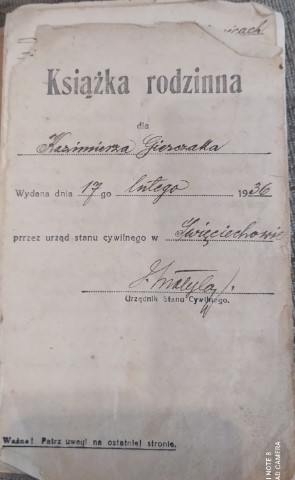 Książka rodzinna
dla
Kazimierza Gierczaka
Wydana dnia 17 go lutego 1936
przez urząd stanu cywilnego w Święciechowie
Urzędnik Stanu Cywilnego.
Ważne! Patrz uwagi na ostatniej stronie.
NOTE 8
AD CAMERA